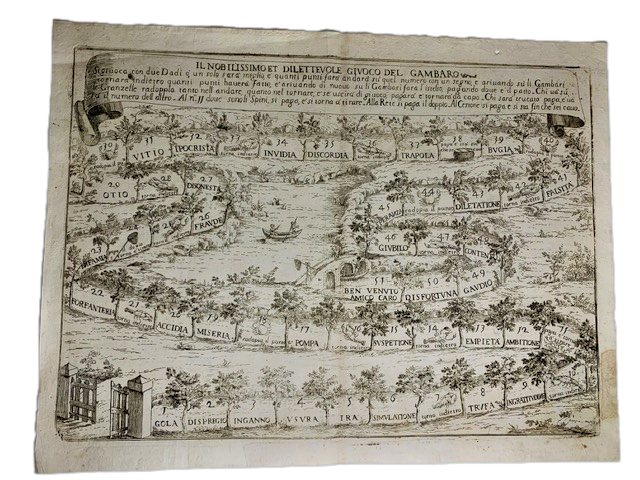 IL NOBILISSIMO ET DILETTEVOLE GIVOCO DEL GAMBARO
Si giuoco con due Dadi q un solo sara meglio, e quanti punti fara andarà su quel numero con un segno, e arivando su li Gambari
tornara indietro quanti punti havera fatto, e arivando di nuovo su li Gambari fara l istesso, pagando doue è il patto. Chi và sù
le Granzelle radoppia tanto nell andare, quanto nel tornare, e se uscira di giuoco pagara e tornara da capo. Chi sara trucato paga, e và
il numero dell altro. Al nº 11 doue sono li Spini, si paga, e si torna a tirare. Alla Rete si paga il doppio. Al Cestone si paga e si sta fin che sei cauato
30
31 VITIO
32 IPOCRISIA
33 torna indietro
34 INVIDIA
35 DISCORDIA
36
37 TRAPOLA
38
39 BVGIA
40
29 OTIO
28
27 DISONESTA
26 FRAVDE
23 INFAMIA
45
44 radopia il punto
43 DILETATIONE
42 torna indietro
41 FALSITA
46 GIVBILO
47 torna indietro
48 CONTENTO
51 BEN VENVTO AMICO CARO
50 DISFORTVNA
49 GAVDIO
22 FORFANTERIA
21 torna indietro
20 ACCIDIA
19 MISERIA
18 radopia il punto
17 POMPA
16 torna indietro
15 SVSPETIONE
14 torna indietro
13 EMPIETÀ
12 AMBITIONE
11
1 GOLA
2 DISPREGIO
3 INGANNO
4 VSVRA
5 IRA
6 SIMVLATIONE
7 torna indietro
8 TRVFA
9 INGRATITVDINE
10